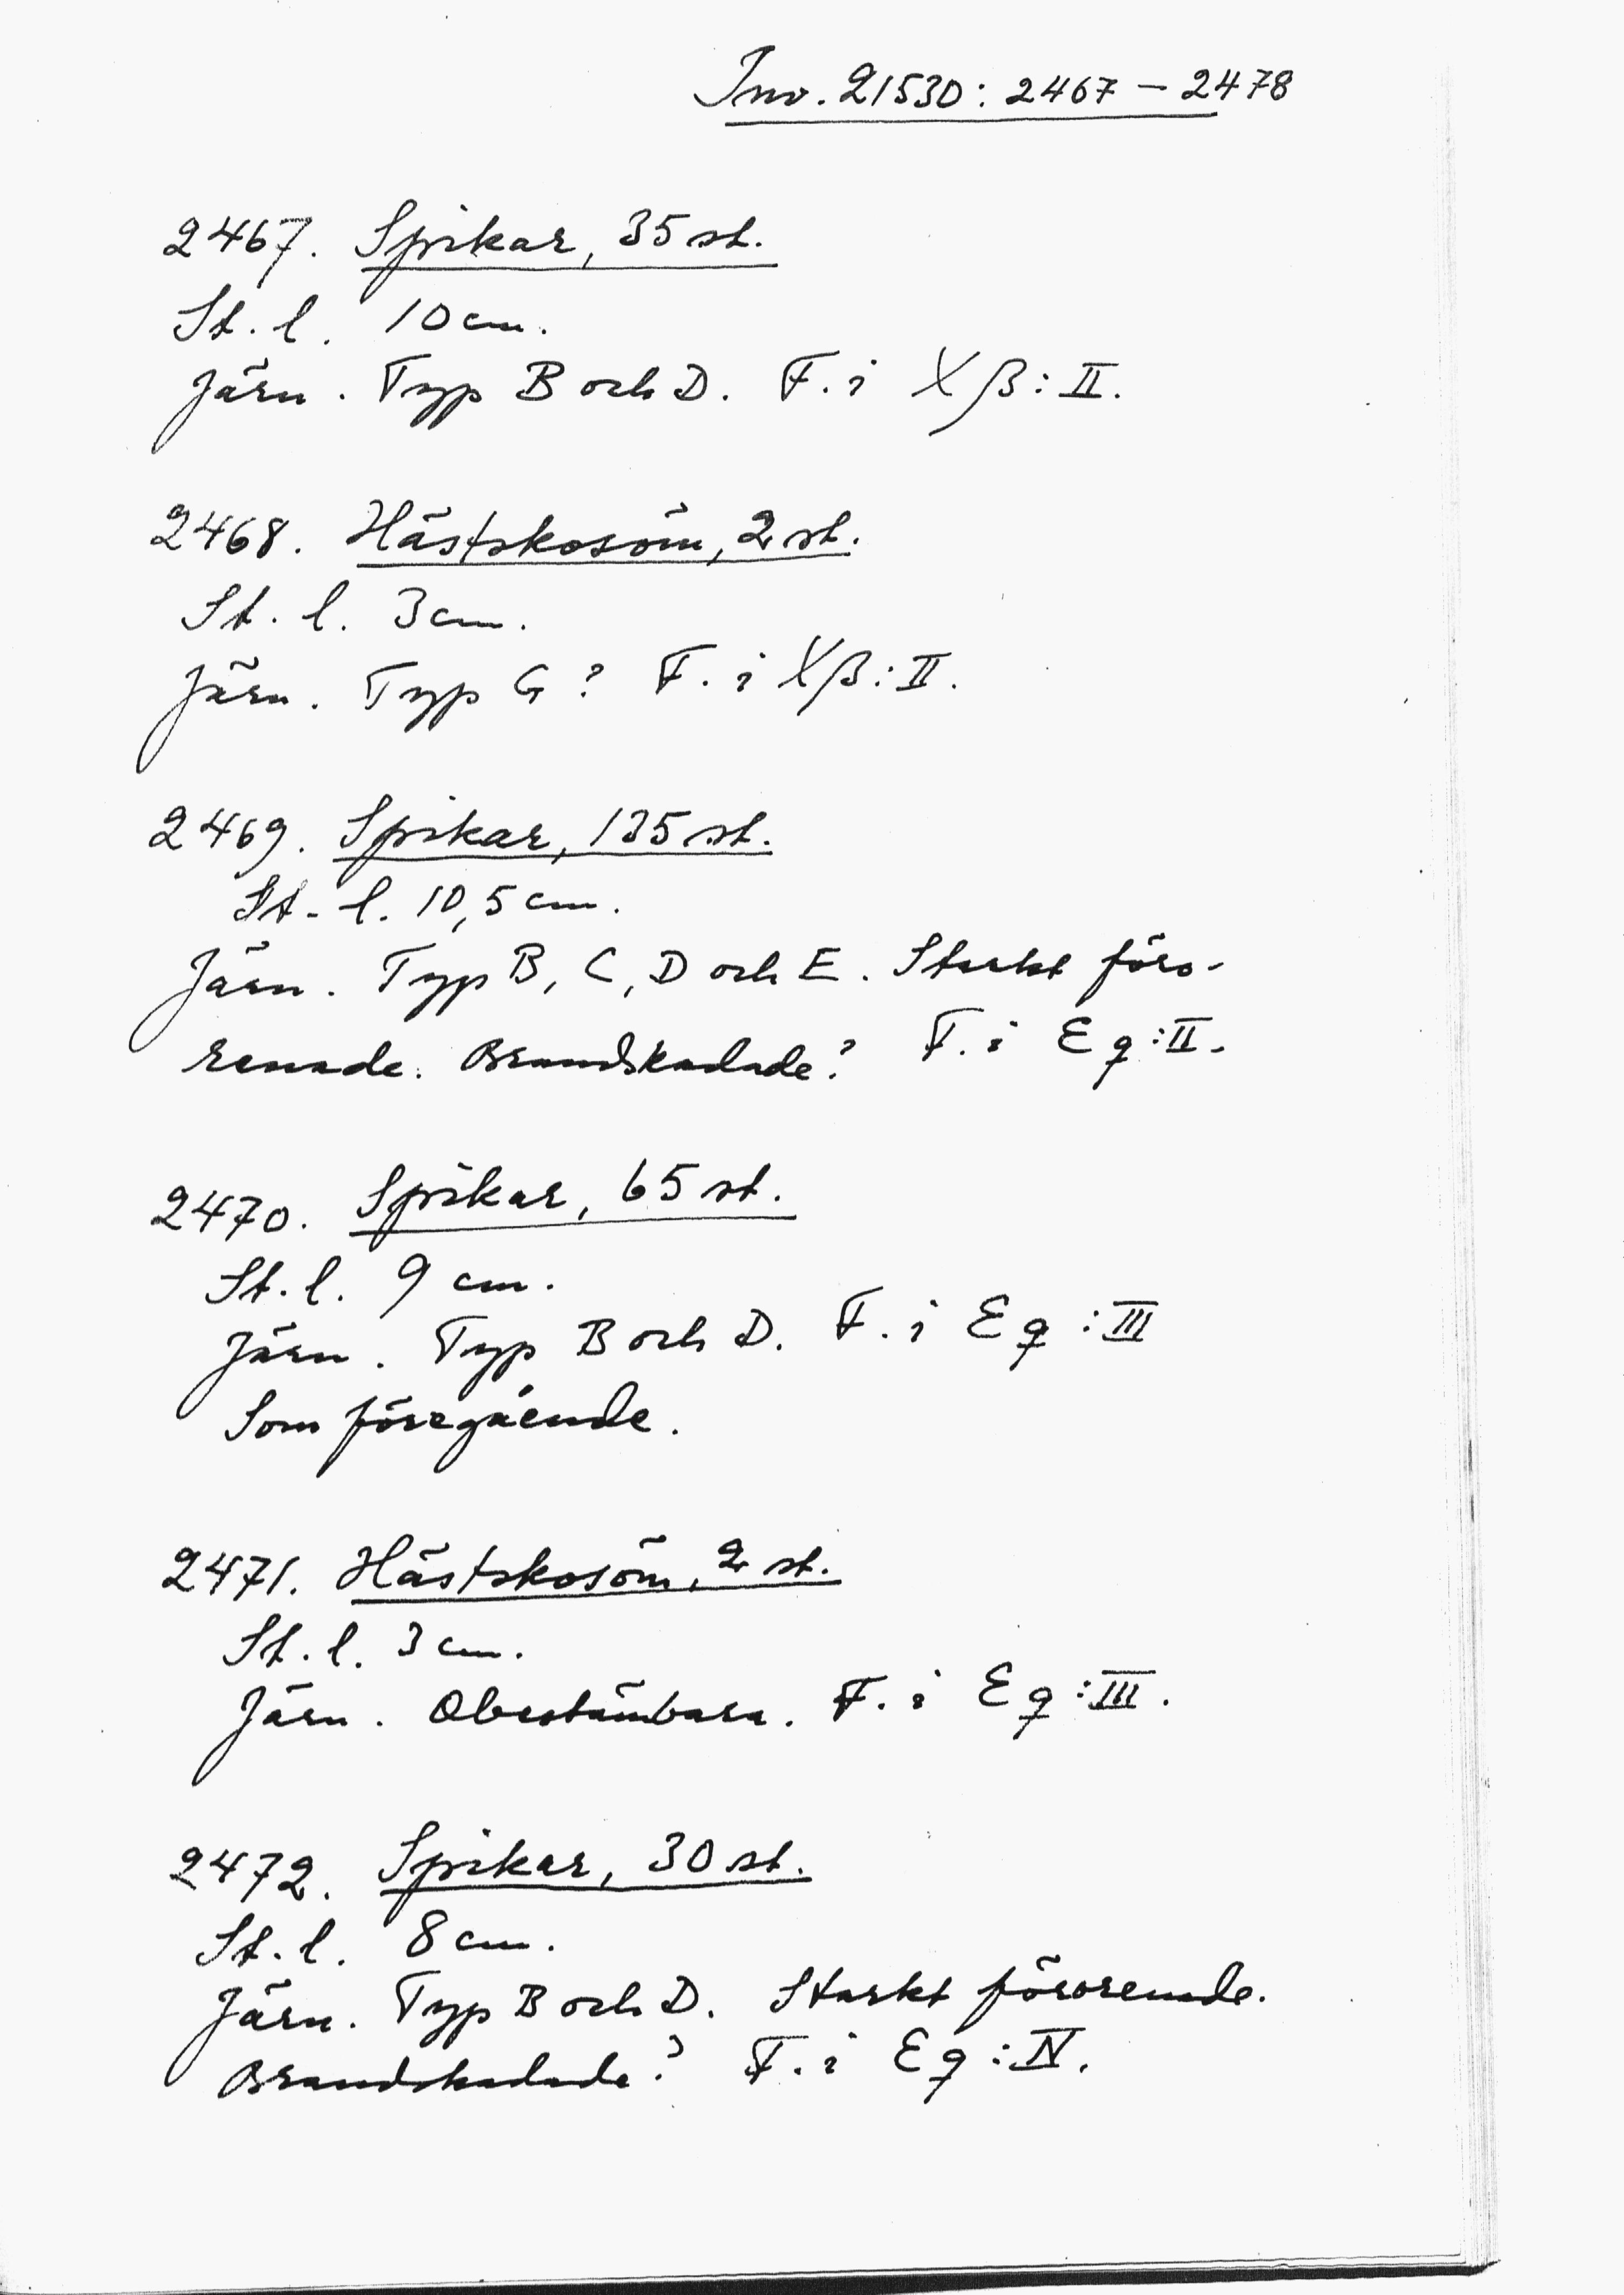 Inv. 21530: 2467 – 2478
2467. Spikar, 35 st.
St. l. 10 cm.
Järn. Typ B och D. F. i Xβ:II.
2468. Hästskosöm, 2 st.
St. l. 3 cm.
Järn. Typ G? F. i Xβ:II.
2469. Spikar, 135 st.
St. l. 10,5 cm.
Järn. Typ B, C, D och E. Starkt föro-
renade. Brandskadade? F. i Eq:II.
2470. Spikar, 65 st.
St. l. 9 cm.
Järn. Typ B och D. F. i Eq:III
Som föregående.
2471. Hästskosöm, 2 st.
St. l. 3 cm.
Järn. Obestämbara. F. i Eq:III.
2472. Spikar, 30 st.
St. l. 8 cm.
Järn. Typ B och D. Starkt förorenade.
Brandskadade? F. i Eq:IV.